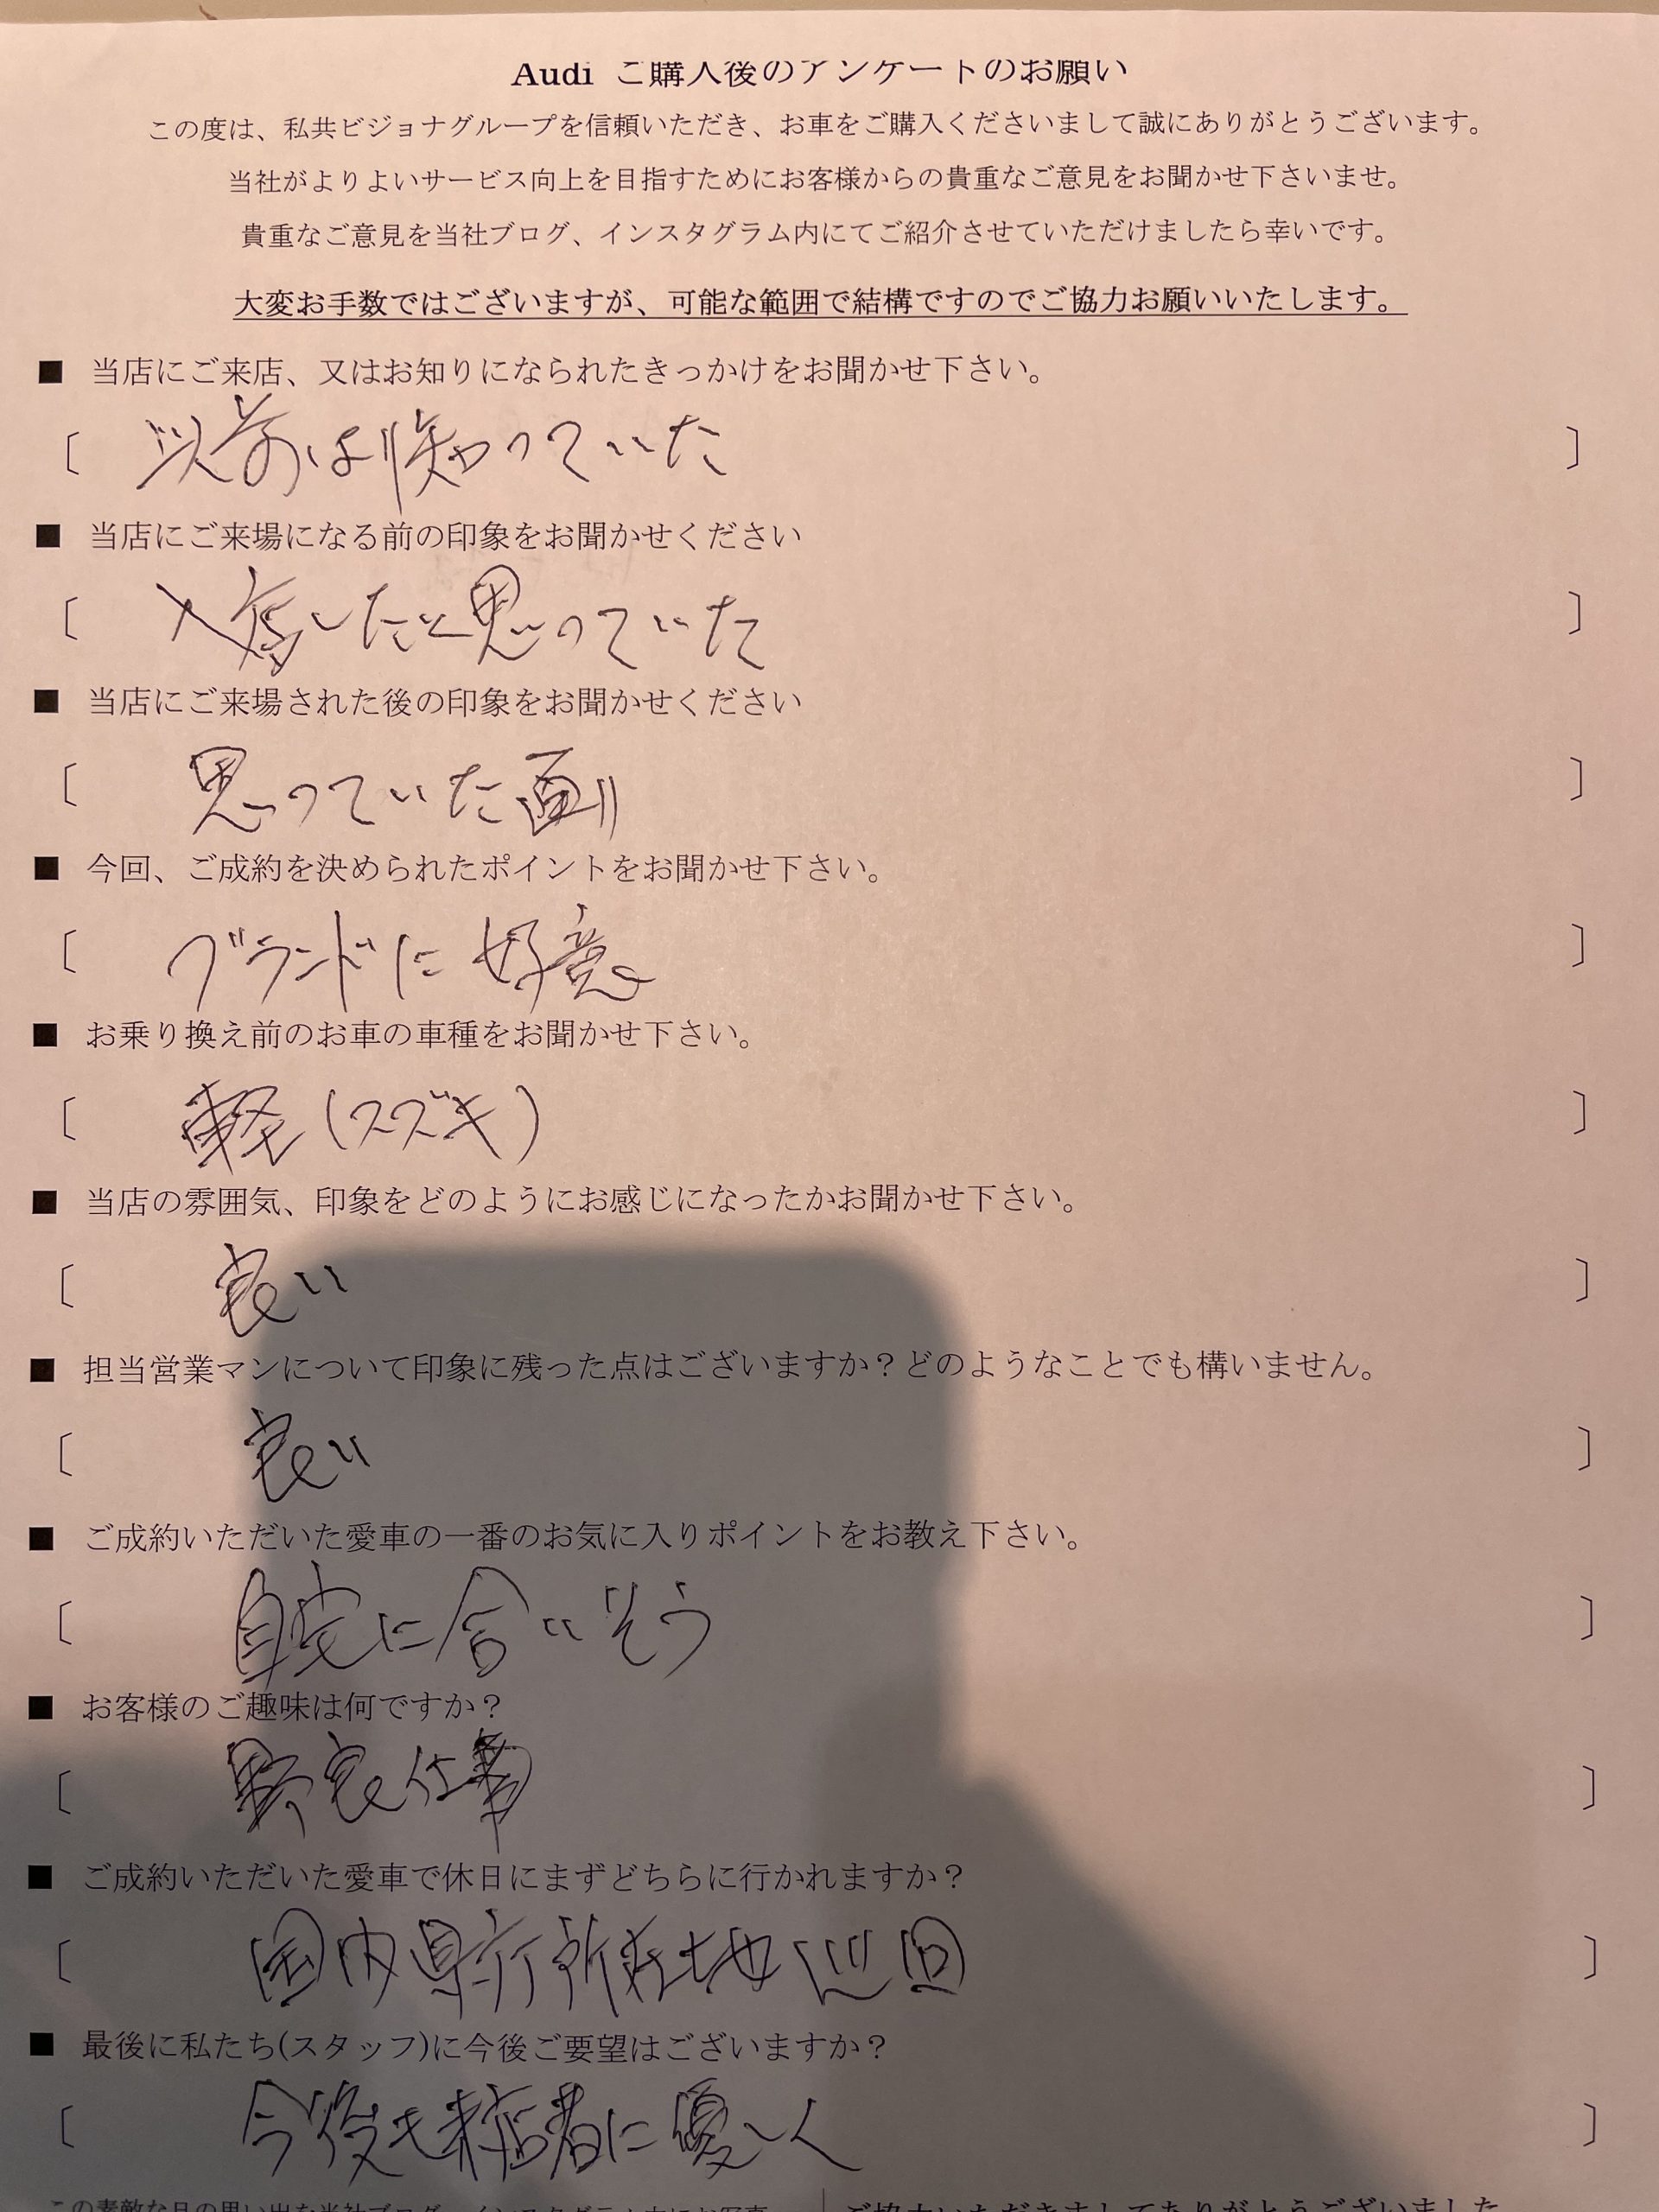 Audi ご購入後のアンケートのお願い
この度は、私共ビジョナグループを信頼いただき、お車をご購入くださいまして誠にありがとうございます。
当社がよりよいサービス向上を目指すためにお客様からの貴重なご意見をお聞かせ下さいませ。
貴重なご意見を当社ブログ、インスタグラム内にてご紹介させていただけましたら幸いです。
大変お手数ではございますが、可能な範囲で結構ですのでご協力お願いいたします。
■ 当店にご来店、又はお知りになられたきっかけをお聞かせ下さい。
〔 以前より知っていた 〕
■ 当店にご来場になる前の印象をお聞かせください
〔 入店したいと思っていた 〕
■ 当店にご来場された後の印象をお聞かせください
〔 思っていた通り 〕
■ 今回、ご成約を決められたポイントをお聞かせ下さい。
〔 ブランドに好意 〕
■ お乗り換え前のお車の車種をお聞かせ下さい。
〔 軽(スズキ) 〕
■ 当店の雰囲気、印象をどのようにお感じになったかお聞かせ下さい。
〔 良い 〕
■ 担当営業マンについて印象に残った点はございますか?どのようなことでも構いません。
〔 良い 〕
■ ご成約いただいた愛車の一番のお気に入りポイントをお教え下さい。
〔 自宅に合いそう 〕
■ お客様のご趣味は何ですか?
〔 野良仕事 〕
■ ご成約いただいた愛車で休日にまずどちらに行かれますか?
〔 国内県庁所在地巡回 〕
■ 最後に私たち(スタッフ)に今後ご要望はございますか?
〔 今後も来店者に優しく 〕
ご協力いただきましてありがとうございました